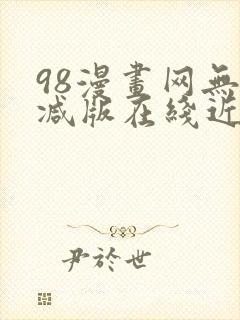 98漫畫网無
减版在綫近
尹於世